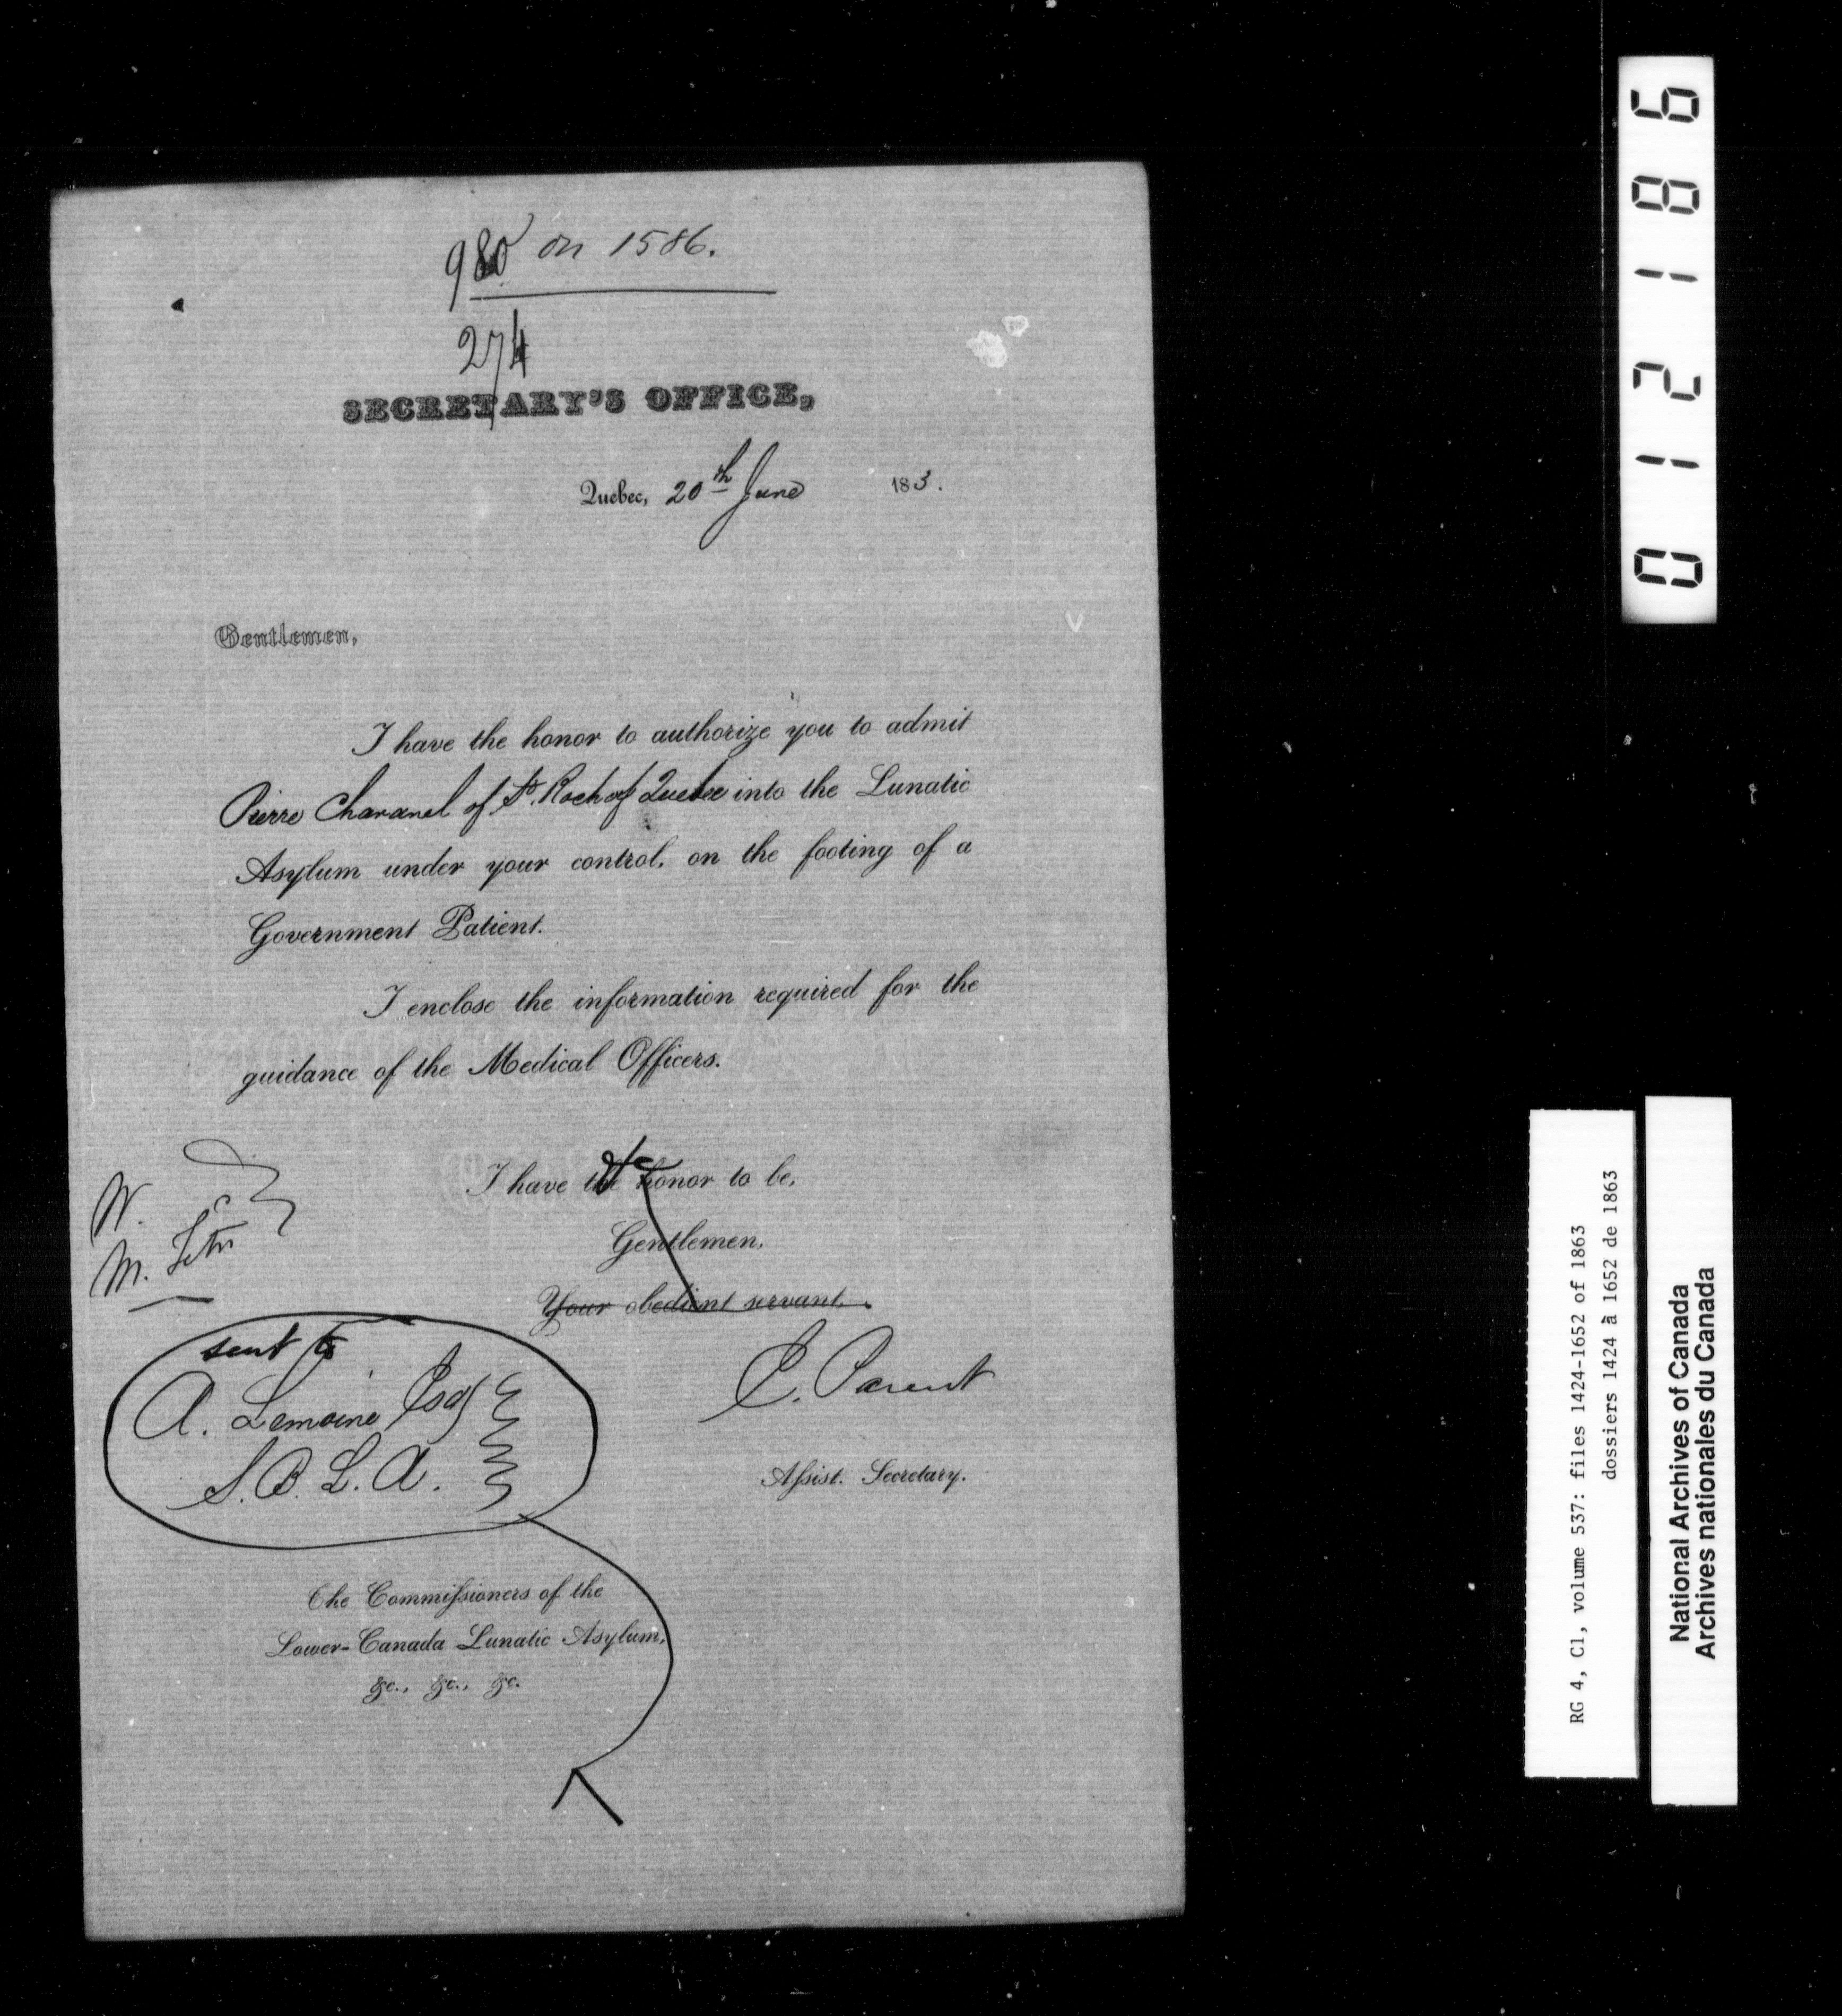 980 on 1586.
274
SECRETARY'S OFFICE,
Quebec, 20th June 183.
Gentlemen,
I have the honor to authorize you to admit
Pierre Charanel of St. Roch of Quebec into the Lunatic
Asylum under your control, on the footing of a
Government Patient.
I enclose the information required for the
guidance of the Medical Officers.
I have the honor to be,
Gentlemen,
Your obedient servant,
W.
M.
sent to
A. Lemoine Esq
S.B.L.A.
E. Parent
Assist. Secretary.
The Commissioners of the
Lower-Canada Lunatic Asylum,
&c., &c., &c.
012186
RG 4, C1, volume 537: files 1424-1652 of 1863
dossiers 1424 à 1652 de 1863
National Archives of Canada
Archives nationales du Canada